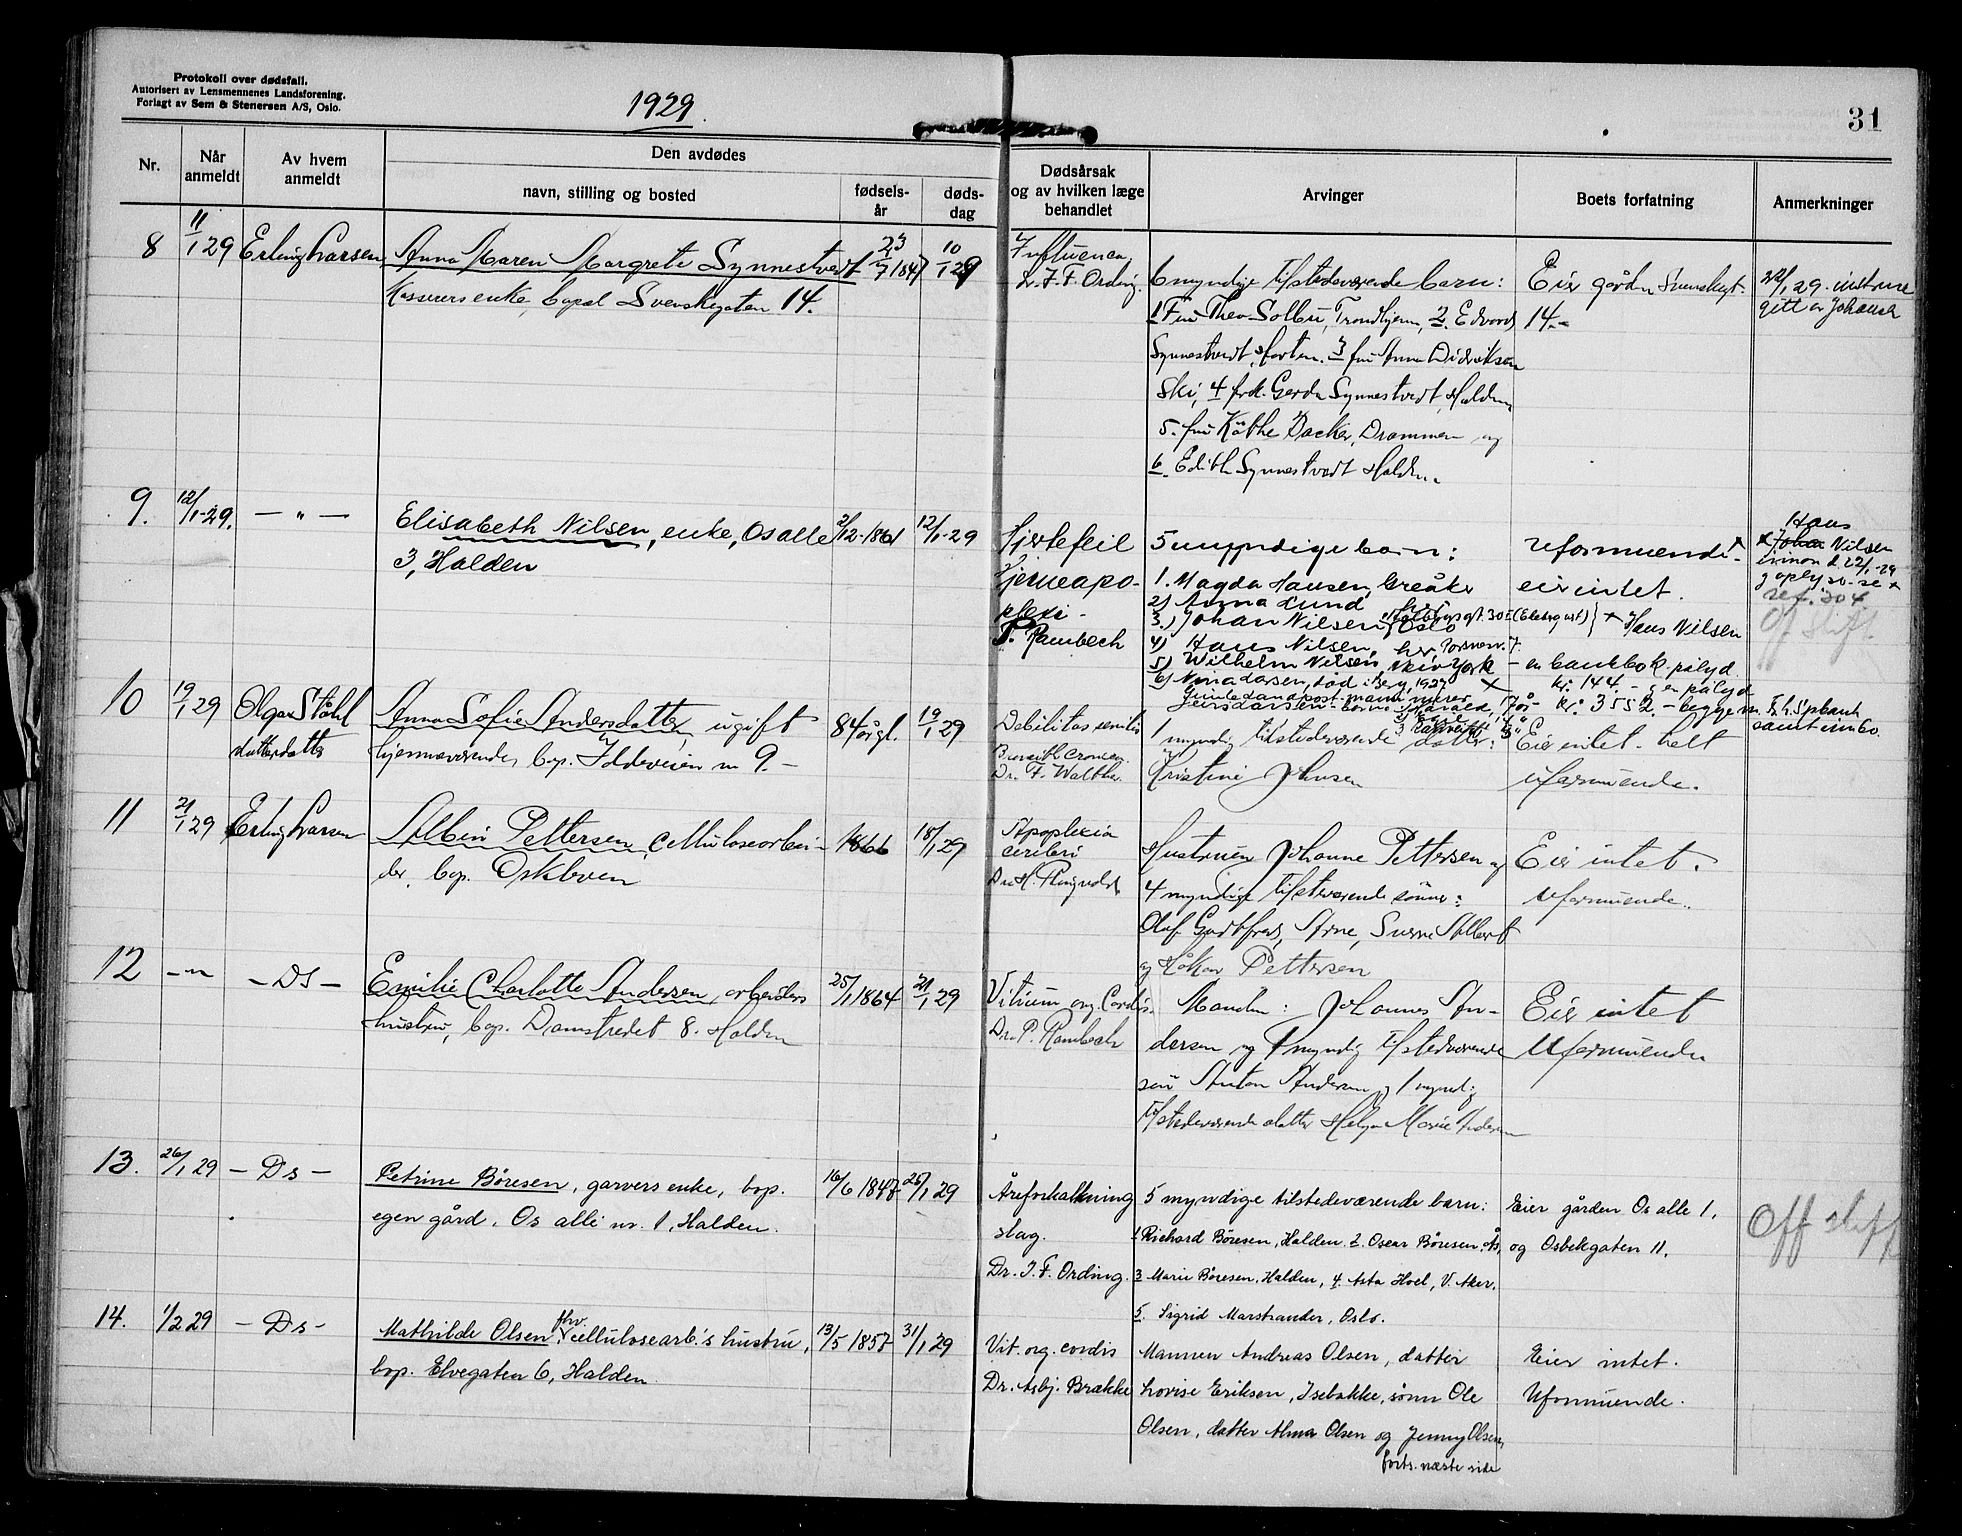 Protokoll over dødsfall.
Autorisert av Lensmennenes Landsforening.
Forlagt av Sem & Stenersen A/S, Oslo.
1929.
31
Nr.
Når anmeldt
Av hvem anmeldt
Den avdødes
navn, stilling og bosted
fødsels-år
døds-dag
Dødsårsak og av hvilken læge behandlet
Arvinger
Boets forfatning
Anmerkninger
8
11/1 29
Erling Larsen
Anna Maren Margrete Synnestvedt
enke, bopæl Svenskegaten 14.
23/7 1847
10/1 29
Influenca,
L. F. F. Ording.
6 myndige tilstedeværende barn:
1 Fru Thea Solbu, Trondhjem, 2. Edvard
Synnestvedt, Horten. 3 fru Anna Didriksen
Ski, 4 frk. Gerda Synnestvedt, Halden
5. fru Käthe Backer, Drammen og
6. Edith Synnestvedt Halden.
Eier gården Svenskegt.
14.-
22/1 29.
gitt av Johansen
9.
12/1-29.
- " -
Elisabeth Nilsen, enke, Os alle
3, Halden
2/12-1861
12/1-29
Hjertefeil
Hjerneapo-
plexi -
P. Rambech
5 umyndige barn:
1. Magda Hansen, Greåker
2) Anna Lund her
3.) Johan Nilsen, Oslo
4) Hans Nilsen, her
5) Wilhelm Nilsen New York
6) Nina Larsen, død i Berg, 1927
uformuende
eier intet.
Hans Nilsen
- en bankbok pålyd
kr. 144. - og en pålyd
kr. 3552. - begge
Hans
Johan Nilsen
22/1-29
Off skift.
10
19/1 29
Olga Ståhl
datterdatter
Anna Sofie Andersdatter, ugift
hjemmeværende, bop. Iddeveien nr 9. -
84 år gl.
19/1 29
Debilitas senilis
Dr. F. Walther
1 myndig tilstedeværende datter:
Kristine Johnsen
Eier intet. helt
uformuende.
11
21/1 29
Erling Larsen
Albin Pettersen, cellulosearbei-
der, bop. Oskleven
1866
18/1 29
Apoplexia
cerebri
Dr. H. Ringvold
Hustruen Johanne Pettersen og
4 myndige tilstedeværende sønner:
Olaf Godtfred, Arne, Sverre Albert
og Håkon Pettersen
Eier intet.
Uformuende.
12
- " -
- Ds -
Emilie Charlotte Andersen, arbeiders
hustru, bop. Damstredet 8. Halden
25/1 1864
21/1 29
Vitium org. Cordis.
Dr. P. Rambech
Manden: Johannes An-
dersen og 1 myndig tilstedeværende
søn Anton Andersen og 1 myndig
tilstedeværende datter Helga Marie Andersen
Eier intet
Uformuende
13.
26/1 29
- Ds -
Petrine Børesen, garvers enke, bop.
egen gård, Os alle nr. 1, Halden.
16/6 1847
25/1 29
Åreforkalkning
slag.
Dr. I. F. Ording.
5 myndige tilstedeværende barn:
1 Richard Børesen, Halden, 2. Oscar Børesen, Ås,
3 Marie Børesen, Halden, 4. Asta Hoel, V. Aker.
5. Sigrid Marstrander, Oslo.
Eier gården Os alle 1,
og Osbekgaten 11.
Off skift
14.
1/2 29
- Ds -
Mathilde Olsen, fhv. cellulosearb.'s hustru,
bop. Elvegaten 6, Halden.
13/5 1857
31/1 29
Vit. org. cordis
Dr. Asbj. Brække
Mannen Andreas Olsen, datter
Lovise Eriksen, Isebakke, sønn Ole
Olsen, datter Alma Olsen og Jenny Olsen,
forts. næste side
Eier intet.
Uformuende.